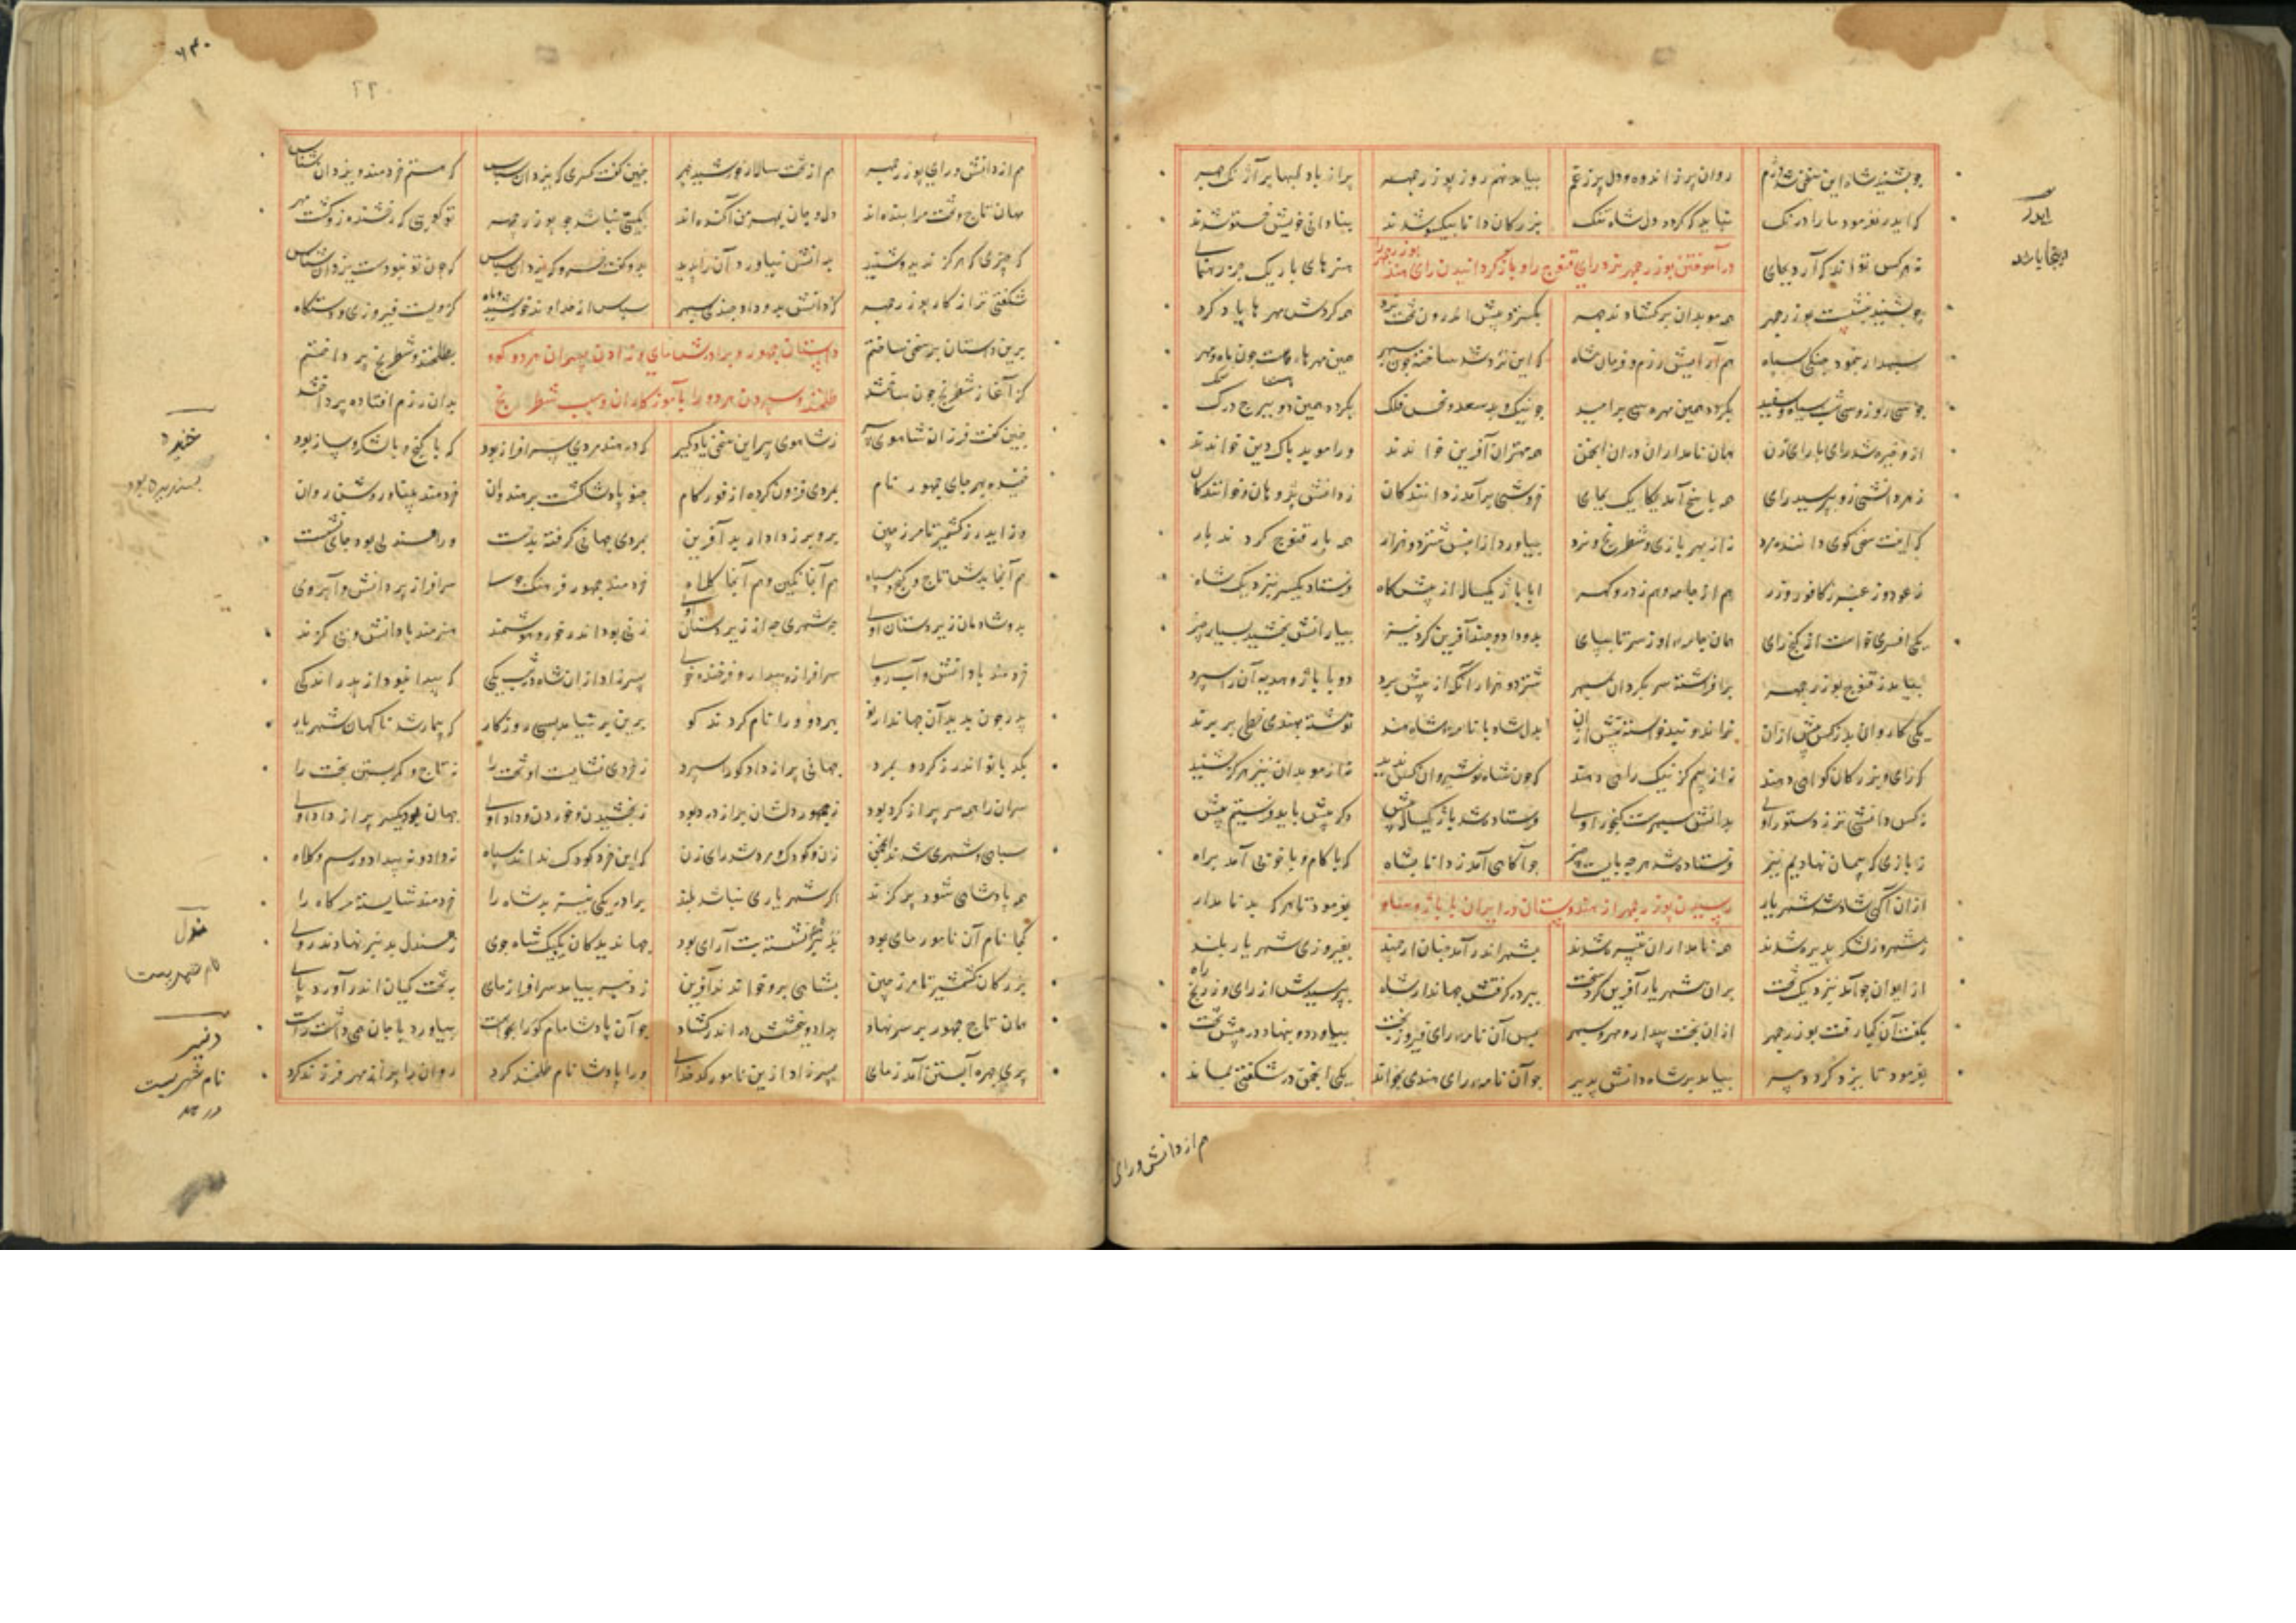 چو بشنید شاه این سخن شد دژم روان پر ز اندوه و دل پر ز غم بیامد نهم روز بوزرجمهر پر از باد لبها پر آژنگ چهر
که ایدر بفرمود ما را درنک نباید که گردد دل شاه تنک بزرکان دانا بیکسو شدند بنادانی خویش خستو شدند
نه هرکس تواند که آرد بجای در آموختن بوزرجمهر نرد رای قنوج را و بازگردانیدن رای هند بوزرجمهر را هنرهای باریک جز رهنمای
چو بشنید بنشست بوزرجمهر همه موبدان برکشادند چهر بکسترد پیش اندرون تخت نرد همه کردش مهرها یاد کرد
سپهدار بنمود و جنکی سپاه هم آرایش رزم و فرمان شاه
چو سی روز و سی شب سیاه و سفید
ازو خیره شد رای با رای زن همان نامداران دران انجمن همه مهتران آفرین خواندند ورا موبد پاک دین خواندند
ز هر دانشی زو بپرسید رای همه پاسخ آمد یکایک بجای خروشی برآمد ز دانندکان ز دانش پژوهان و خوانندکان
که اینت سخن کوی داننده مرد نه از بهر بازی و شطرنج و نرد بیاورد ازان پس شتر دو هزار همه بار قنوج کردند بار
ز عود و ز عنبر ز کافور و زر هم از جامه و هم ز در و کهر ابا باژ یکسال از پیش کاه فرستاد یکسر بنزدیک شاه
یکی افسری خواست از کنج رای همان جامه از سر تا بپای بدو داد و چند آفرین کرد نیز بیارانش بخشید بسیار چیز
بیامد ز قنوج بوزرجمهر برافراشته سر بگردان سپهر شتر دو هزار آنک از پیش برد دو با باژ و هدیه آن را سپرد
یکی کاروان بد که کس پیش ازان نراند و نبد خواسته پیش ازان بدل شاد با نامه شاه هند نوشته بهندی خطی بر پرند
که رای و بزرکان کواهی دهند نه از بیم کز نیک رایی دهند که چون شاه نوشیروان کس ندید نه از موبدان نیز هرکز شنید
نه کس دانشی تر ز دستور اوی بدانش سپهرست کنجور اوی فرستاده شد باژ یکساله پیش وکر بیش باید فرستیم بیش
ز بازی که پیمان نهادیم نیز فرستاده شد هرچه بایست چیز چو آکاهی آمد ز دانا بشاه که با کام و با خوبی آمد براه
ازان آکهی شاد شد شهریار رسیدن بوزرجمهر از هندوستان در ایران با باژ و ساو بفرمود تا هر که بد نامدار
ز شهر و ز لشکر پذیره شدند همه نامداران تبیره شدند بشهر اندر آمد چنان ارجمند بپیروزی شهریار بلند
از ایوان چو آمد بنزدیک تخت بران شهریار آفرین کرد سخت ببر در کرفتش جهاندار شاه بپرسیدش از رای وز رنج راه
بکفت آن کجا رفت بوزرجمهر ازان بخت بیدار و مهر و سپهر پس آن نامه رای فیروز بخت بیاورد و بنهاد در پیش تخت
بفرمود تا یزدکرد دبیر بیامد بر شاه دانش پذیر چو آن نامه رای هندی بخواند یکی انجمن در شکفتی بماند
ایدر
اینجا باشد
هم از دانش و رای
۶۴۰
هم از دانش و رای بوزرجمهر هم از تخت سالار خورشید چهر چنین کفت کسری که یزدان سپاس که هستم خردمند و یزدان شناس
مهان تاج و تخت مرا بنده اند دل و جان بمهر من آکنده اند
که چیزی که هرکز ندید و شنید بدانش نیاورد آن را پدید بدو کفت خسرو که یزدان سپاس که چون تو نبودست یزدان شناس
شکفتی تر از کار بوزرجمهر که دانش بدو داد چندی سپهر سپاس از خداوند خورشید و ماه کزویست فیروزی و دستکاه
برین داستان بر سخن ساختم داستان جمهور و برادرش مای و زادن پسران هر دو کوه بطلخند و شطرنج پرداختم
کز آغاز شطرنج چون ساختند طلخند و سپردن هر دو را باموزکاران و سبب شطرنج بدان رزم افتاده پرداختند
چنین کفت فرزان شاهوی پیر ز شاهوی پیر این سخن یاد کیر که در هند مردی سرافراز بود که با کنج و با لشکر و ساز بود
خنیده بهر جای جمهور نام بمردی فزون کرده از فور کام چنو پادشا کشت بر هندوان خردمند بینا و روشن روان
وز ایدر ز کشمیر تا مرز چین برو بر ز داد آفرین بمردی جهانی کرفته بدست ورا سندلی بود جای نشست
هم آنجا بدش تاج و کنج و سپاه هم آنجا نکین و هم آنجا کلاه خردمند جمهور فرهنک جوی سرافراز پر دانش و آبروی
بدو شادمان زیردستان اوی چه شهری چه از زیردستان اوی زنی بود اندر خور و هوشمند هنرمند با دانش و بی کزند
خردمند با دانش و آب روی سرافراز و بیدار و فرخنده خوی پسر زاد ازان شاه در شب یکی که پیدا نبود از پدر اندکی
پدر چون بدید آن جهاندار نو بهردو ورا نام کردند کو برین بر نیامد بسی روزکار که بیمار شد ناکهان شهریار
بکدبانو اندرز کرد و بمرد جهانی پر از داد کو را سپرد ز خردی نشایست او تخت را نه تاج و کمر بستن بخت را
سران را همه سر پر از کرد بود ز جمهور دلشان پر از درد بود ز بخشیدن و خوردن و داد اوی جهان بود یکسر پر از داد اوی
سپاهی و شهری شدند انجمن زن و کودک و مرد شد رای زن که این خرد کودک نداند سپاه نه داد و نه بیداد و رسم و کلاه
همه پادشاهی شود پر کزند اکر شهریاری نباشد بلند برادر یکی نیز بد شاه را خردمند شایسته مر کاه را
کجا نام آن نامور مای بود بدنبر نشسته بت آرای بود جهاندیدکان یکبیک شاه جوی ز سندل بدنبر نهادند روی
بزرکان کشمیر تا مرز چین بشاهی برو خواندند آفرین ز دنبر بیامد سرافراز مای بتخت کیان اندر آورد پای
همان تاج جمهور بر سر نهاد بداد و بخشش در اندر کشاد چو آن پادشا مام کو را بخواست بیاورد با جان همی داشت راست
پری چهره آبستن آمد ز مای پسر زاد ازین نامور کدخدای ورا پادشا نام طلخند کرد روان را پر از مهر فرزند کرد
خنیده
پسندیده بود
نام شهریست
دنبر
نام شهریست
در هند